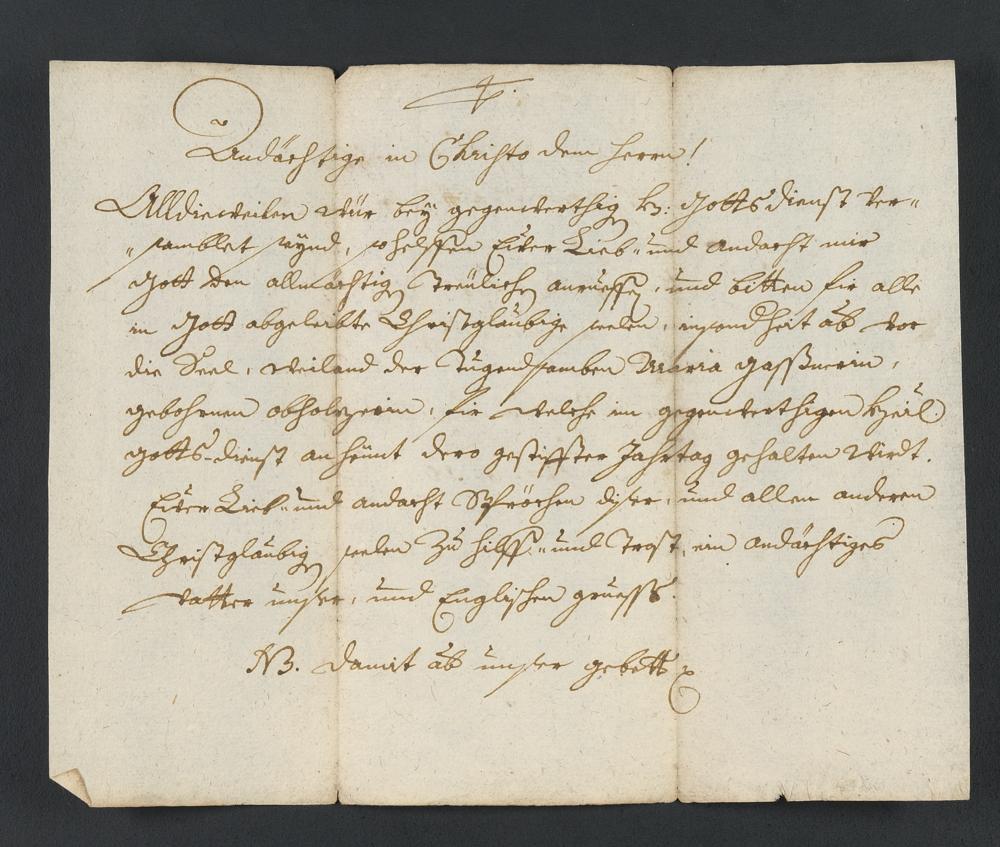 Andächtige in Christo dem Herrn!
Alldieweilen wür bey gegenwerthig h: Gottsdienst ver-
samblet seynd, so helffen Euer Lieb- und Andacht mir
Gott den allmächtig treulich anrueffen, und bitten für alle
in Gott abgeleibte Christglaubige seelen, insondheit ab vor
die Seel, weiland der Tugendsamben Maria Gassnerin,
gebohrnen obholzerin, für welche im gegenwerthigen heil
gotts-dienst anheunt dero gestiffter Jahrtag gehalten wirdt.
Euer Lieb- und andacht Spröchen diser, und allen anderen
Christglaubig seelen zu hilff- und Trost, ein andächtiges
vatter unser, und Englischen gruess.
NB. damit ab unser gebett